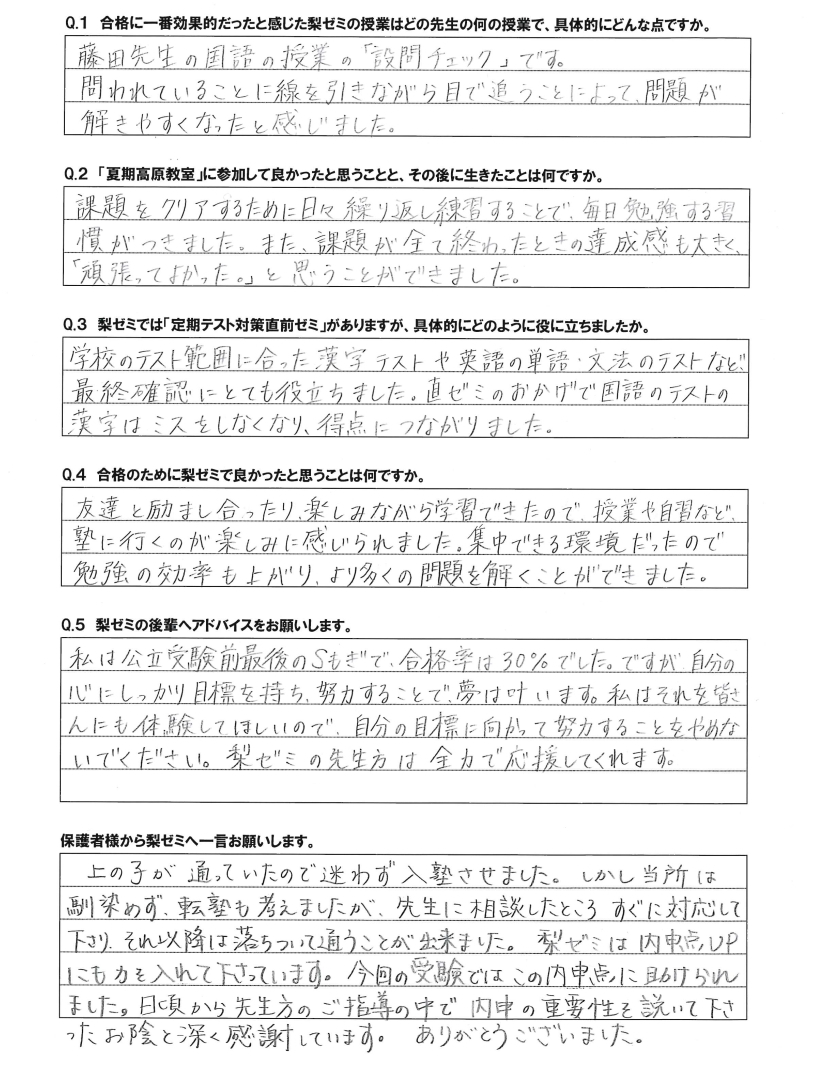 Q.1 合格に一番効果的だったと感じた梨ゼミの授業はどの先生の何の授業で、具体的にどんな点ですか。
藤田先生の国語の授業の「設問チェック」です。
問われていることに線を引きながら目で追うことによって、問題が
解きやすくなったと感じました。
Q.2 「夏期高原教室」に参加して良かったと思うことと、その後に生きたことは何ですか。
課題をクリアするために日々繰り返し練習することで、毎日勉強する習
慣がつきました。また、課題が全て終わったときの達成感も大きく、
「頑張ってよかった。」と思うことができました。
Q.3 梨ゼミでは「定期テスト対策直前ゼミ」がありますが、具体的にどのように役に立ちましたか。
学校のテスト範囲に合った漢字テストや英語の単語・文法のテストなど、
最終確認にとても役立ちました。直ゼミのおかげで国語のテストの
漢字はミスをしなくなり、得点につながりました。
Q.4 合格のために梨ゼミで良かったと思うことは何ですか。
友達と励まし合ったり、楽しみながら学習できたので、授業や自習など、
塾に行くのが楽しみに感じられました。集中できる環境だったので
勉強の効率も上がり、より多くの問題を解くことができました。
Q.5 梨ゼミの後輩へアドバイスをお願いします。
私は公立受験前最後のSもぎで、合格率は30%でした。ですが、自分の
心にしっかり目標を持ち、努力することで、夢は叶います。私はそれを皆さ
んにも体験してほしいので、自分の目標に向かって努力することをやめな
いでください。梨ゼミの先生方は全力で応援してくれます。
保護者様から梨ゼミへ一言お願いします。
上の子が通っていたので迷わず入塾させました。しかし当所は
馴染めず、転塾も考えましたが、先生に相談したところすぐに対応して
下さり、それ以降は落ちついて通うことが出来ました。梨ゼミは内申点UP
にも力を入れて下さっています。今回の受験ではこの内申点に助けられ
ました。日頃から先生方のご指導の中で内申の重要性を説いて下さ
ったお陰と深く感謝しています。ありがとうございました。